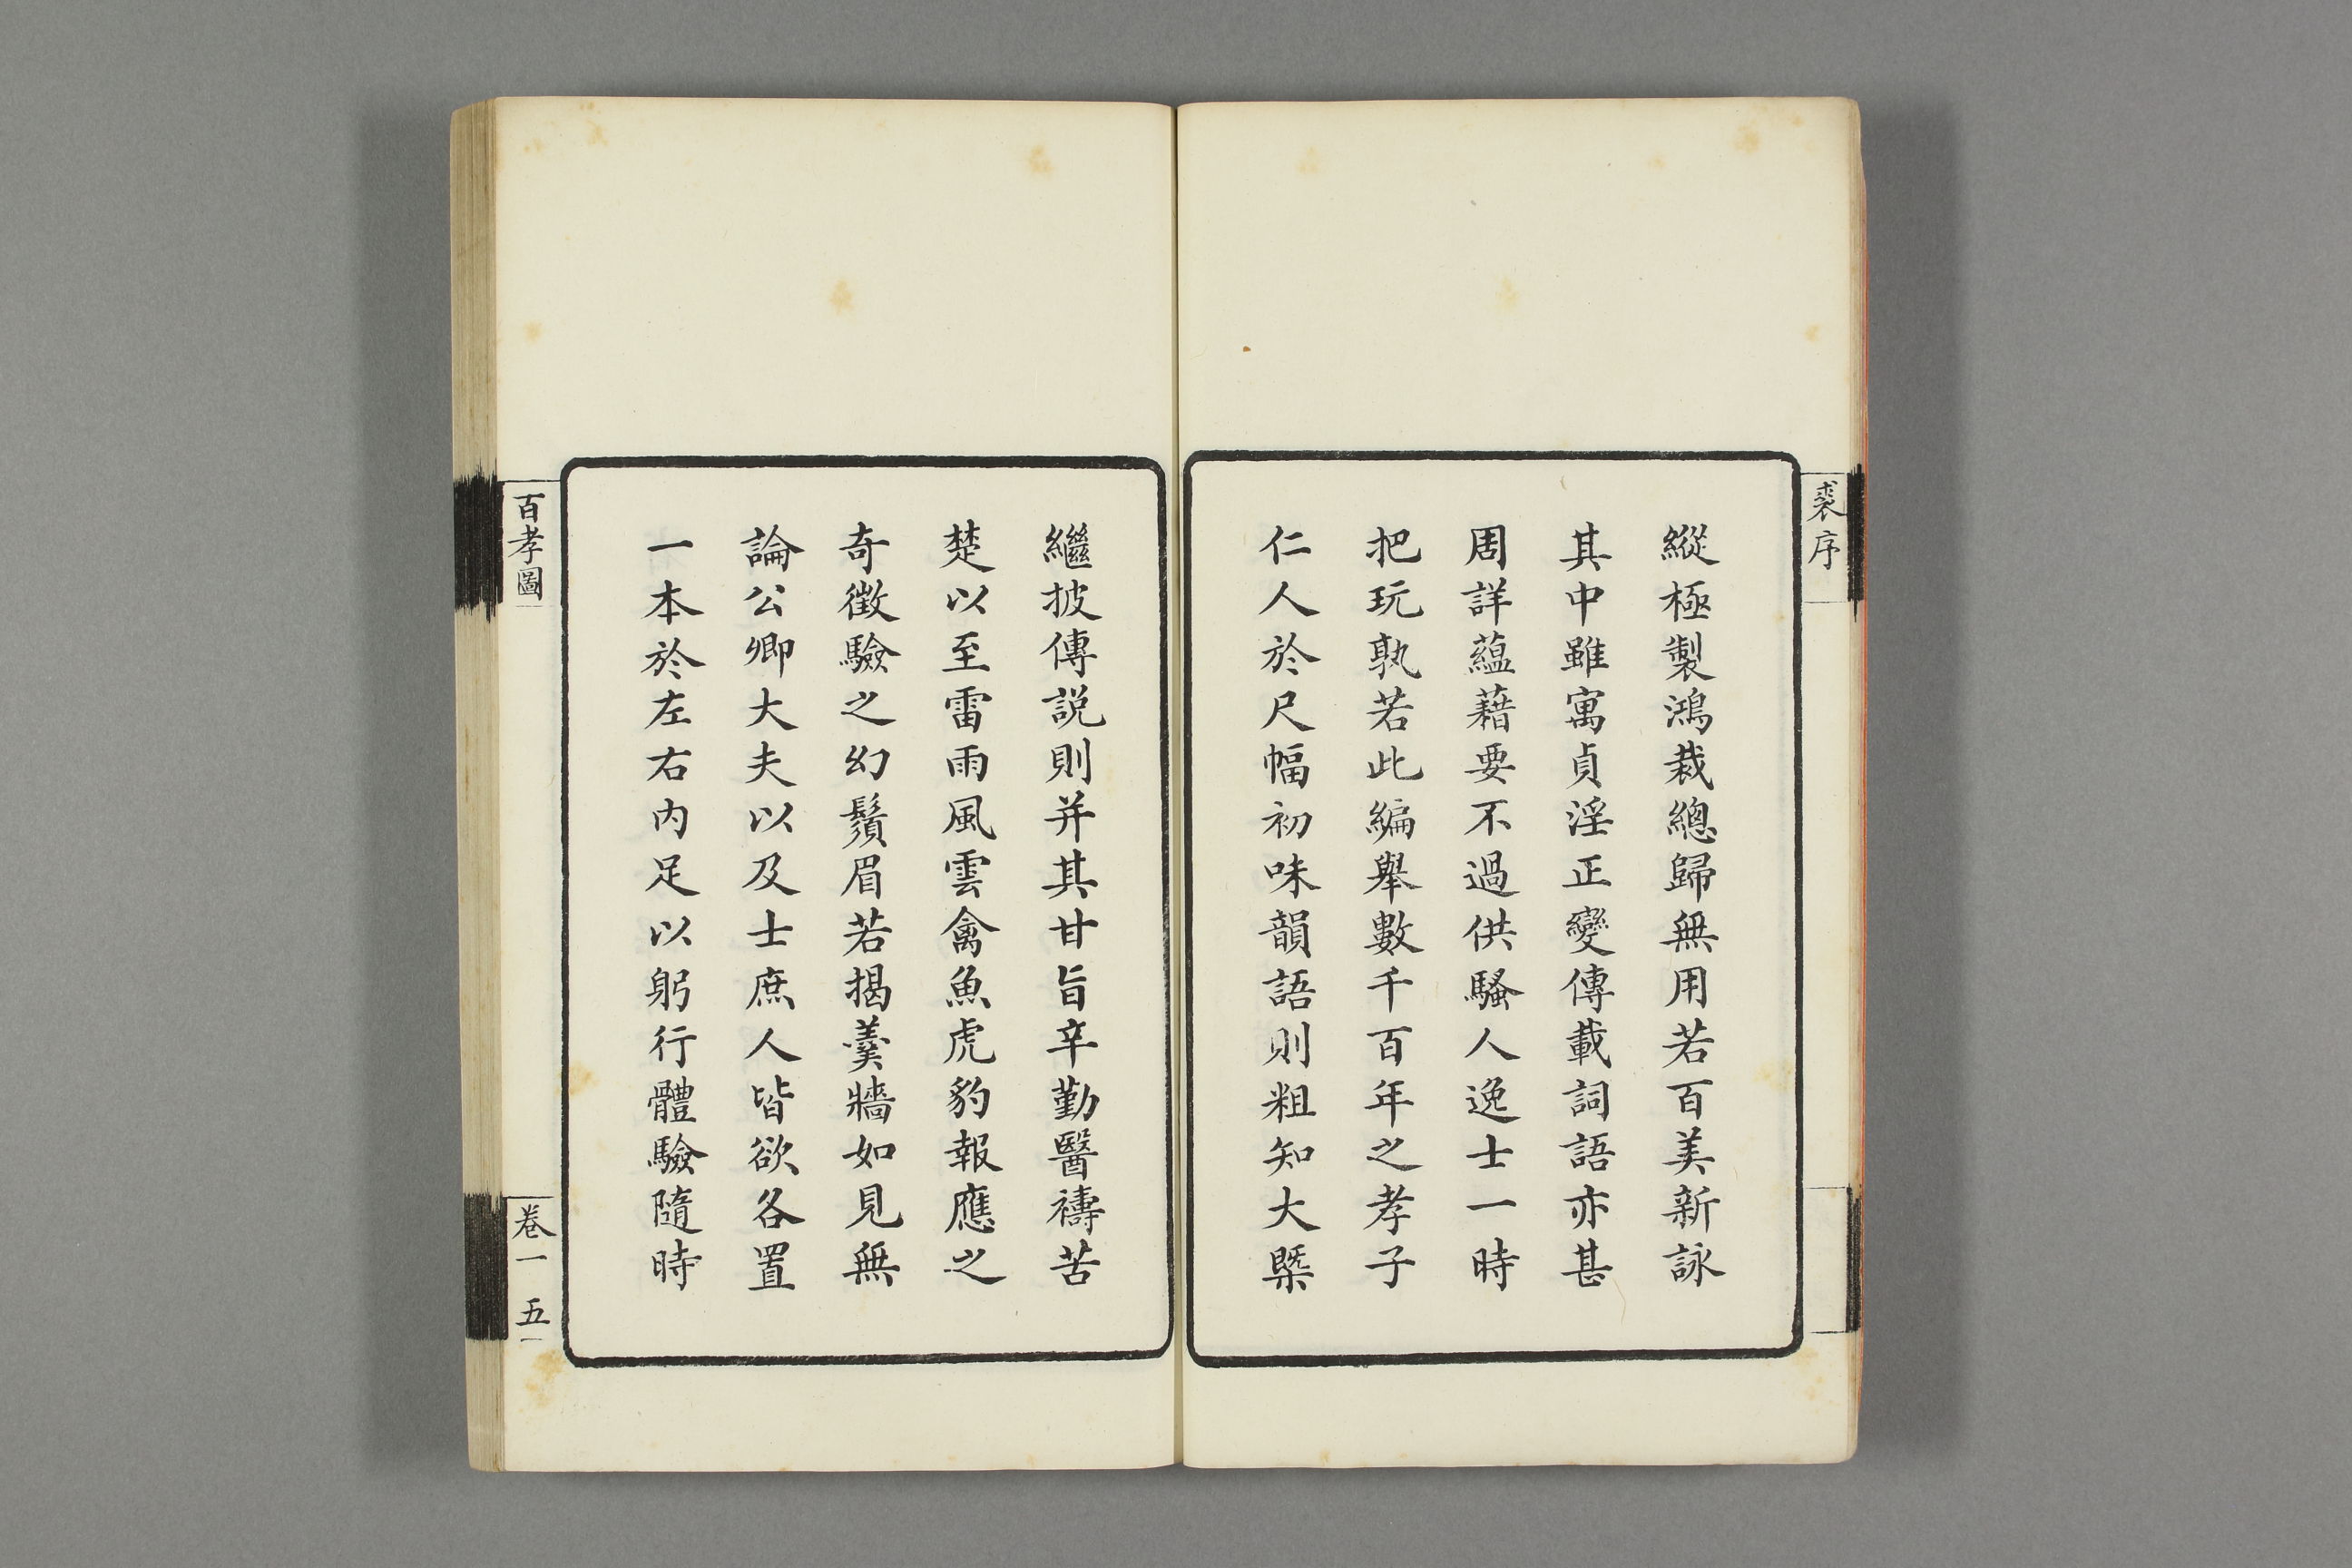 裘序
縱極製鴻裁總歸無用若百美新詠
其中雖寓貞淫正變傳載詞語亦甚
周詳蘊藉要不過供騷人逸士一時
把玩孰若此編舉數千百年之孝子
仁人於尺幅初味韻語則粗知大槩
繼披傳説則并其甘旨辛勤醫禱苦
楚以至雷雨風雲禽魚虎豹報應之
奇徵驗之幻鬚眉若揭羹牆如見無
論公卿大夫以及士庶人皆欲各置
一本於左右内足以躬行體驗隨時
百孝圖
卷一 五